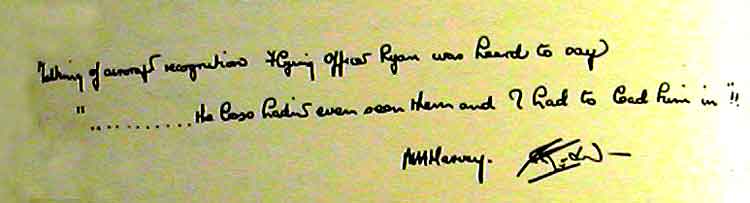 Talking of aircraft recognition Flying Officer Ryan was heard to say
"........... He Boss hadn't even seen them and I had to lead him in"!!
MHarvey.